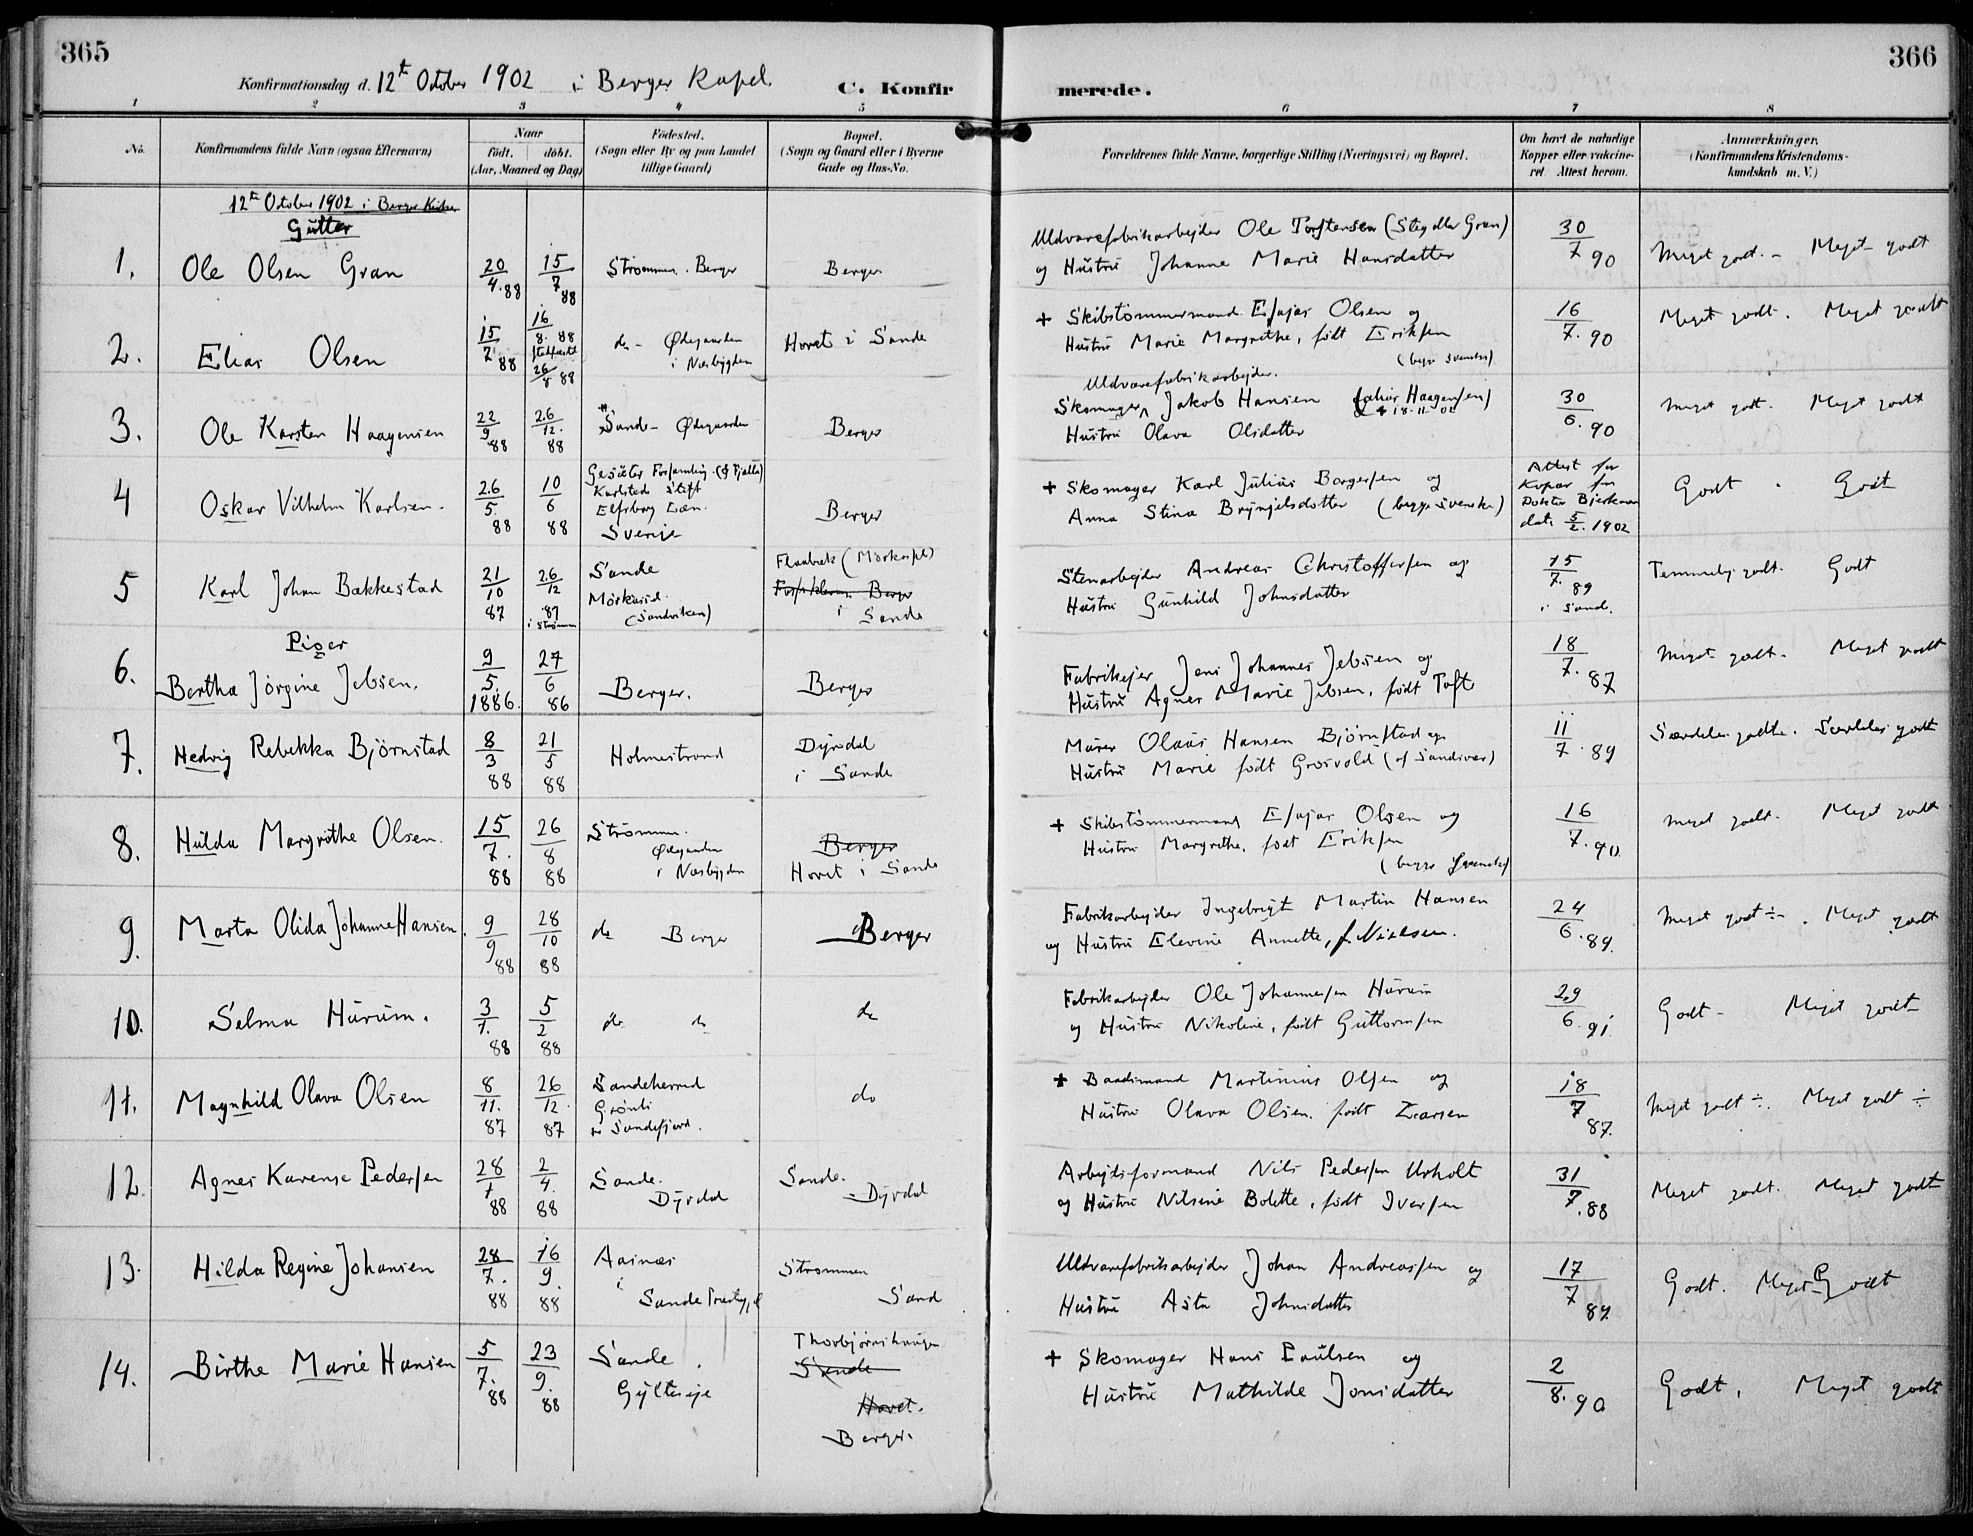 365
366
Konfirmationsdag d. 12te October 1902 i Berger Kapel.
C. Konfirmerede.
1 2 3 4 5 6 7 8
No.
Konfirmandens fulde Navn (ogsaa Efternavn)
Naar
født. | døbt.
(Aar, Maaned og Dag)
Födested.
(Sogn eller By og paa Landet
tillige Gaard)
Bopæl.
(Sogn og Gaard eller i Byerne
Gade og Hus-No.
Forældrenes fulde Navne, borgerlige Stilling (Næringsvei) og Bopæl.
Om havt de naturlige
Kopper eller vakcine-
ret Attest herom.
Anmærkninger.
(Konfirmandens Kristendoms-
kundskab m. V.)
12te October 1902 i Berger Kirke
Gutter
1. Ole Olsen Gran
20/4. 88
15/7 88
Strømmen. Berger
Berger
Uldvarefabrikarbejder Ole Torstensen (Steg eller Gran)
og Hustru Johanne Marie Hansdatter
30/7 90
Meget godt. - Meget godt
2. Elias Olsen
15/7 88
16/8. 88
stadfæstet
26/8 88
do - Ødegaarden
i Næsbygden
Hovet i Sande
+ Skibstømmermand Esajas Olsen og
Hustru Marie Margrethe, født Eriksen
(begge svenske)
16/7. 90
Meget godt. Meget godt
3. Ole Karsten Haagensen
22/9 88
26/12. 88
Sande - Ødegaarden
Berger
Uldvarefabrikarbejder.
Skomager Jakob Hansen (alias Haagensen)
Hustru Olava Olsdatter
30/6. 90
Meget godt. Meget godt
4 Oskar Vilhelm Karlsen.
26/5. 88
10/6 88
Gesäter Forsamling.
Karlstad Stift
Elfsborg Læn.
Sverige
Berger
+ Skomager Karl Julius Borgersen og
Anna Stina Bryngelsdotter (begge svenske)
Attest for
Kopar fra
Doktor Bjerknes
dat. 5/2. 1902
Godt . Godt
5 Karl Johan Bakkestad
21/10 87
26/12 87
i Strømm
Sande
Mörkasid.
(Sandviken)
Flaabæk (Mörkasid)
Berger
i Sande
Stenarbejder Andreas Christoffersen og
Hustru Gunhild Johnsdatter
15/7. 89
i Sand.
Temmelig godt. Godt
Piger
6. Bertha Jörgine Jebsen.
9/5. 1886.
27/6 86
Berger.
Berger
Fabrikejer Jens Johannes Jebsen og
Hustru Agnes Marie Jebsen, født Toft
18/7. 87
Meget godt. Meget godt
7. Hedvig Rebekka Björnstad
8/3 88
21/5 88
Holmestrand
Dyrdal
i Sande
Murer Olaus Hansen Bjørnstad og
Hustru Marie født Grosvold (af Sandsvær)
11/7. 89
Særdeles godt. Særdeles godt
8. Hilda Margrethe Olsen.
15/7. 88
26/8 88
Strømmen.
Ødegaarden
i Næsbygden
Berger
Hovet i Sande
+ Skibstømmermand Esajas Olsen og
Hustru Margrethe, født Eriksen
(begge Svenske)
16/7. 90
Meget godt. Meget godt
9. Marta Olida Johanne Hansen.
9/9 88
28/10 88
do Berger
Berger
Fabrikarbejder Ingebrigt Martin Hansen
og Hustru Elevine Annette, f. Nielsen.
24/6. 89.
Meget godt ÷. Meget godt
10. Selma Hurum.
3/1. 88
5/2 88
do do
do
Fabrikarbejder Ole Johannesen Hurum
og Hustru Nikoline, født Guttormsen
29/6. 91
Godt - Meget godt
11. Magnhild Olava Olsen
8/11. 87
26/12. 87
Sandeherred
Grönli
Sandefjord.
do
+ Baadsmand Martinius Olsen og
Hustru Olava Olsen. født Larsen
18/7 87.
Meget godt ÷. Meget godt ÷
12. Agnes Karense Pedersen
28/1 88
2/4. 88
Sande.
Dyrdal
Sande.
- Dyrdal
Arbejdsformand Nils Pedersen Urholt
og Hustru Nilsine Bolette, født Iversen
31/7. 88
Meget godt. Meget godt
13. Hilda Regine Johansen
28/7. 88
16/9. 88
Aasnæs
i
Sande Præstegj.
Strømmen
Sand
Uldvarefabrikarbejder Johan Andreassen og
Hustru Asta Johnsdatter
17/7 87
Godt. Meget Godt
14. Birthe Marie Hansen
5/7. 88
23/9. 88
Sande.
Gylteeje
Thorbjørnshaugen
Sande
Hovet.
Berger.
+ Skomager Hans Paulsen og
Hustru Mathilde Jonsdatter
2/8. 90
Godt. Meget godt